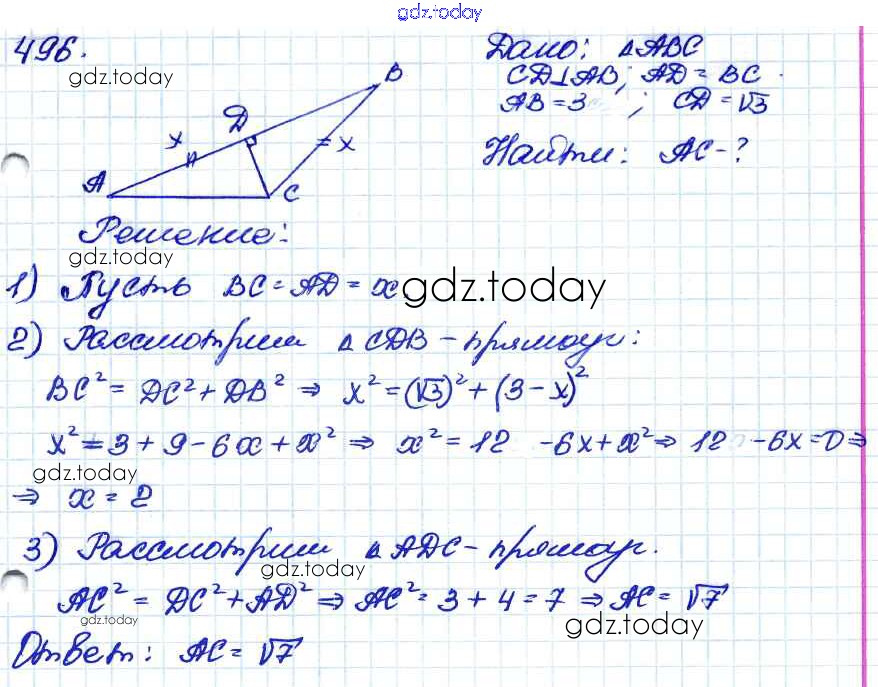 gdz.today
496.
gdz.today
Дано: △ABC
CD⊥AB; AD = BC
AB = 3 ; CD = √3
Найти: AC - ?
B
D
x
x
A
C
Решение:
gdz.today
1) Пусть BC = AD = x
gdz.today
2) Рассмотрим △CDB - прямоуг:
BC² = DC² + DB² ⇒ x² = (√3)² + (3 - x)²
x² = 3 + 9 - 6x + x² ⇒ x² = 12 - 6x + x² ⇒ 12 - 6x = 0 ⇒
gdz.today
⇒ x = 2
3) Рассмотрим △ADC - прямоуг.
gdz.today
AC² = DC² + AD² ⇒ AC² = 3 + 4 = 7 ⇒ AC = √7
gdz.today
gdz.today
Ответ: AC = √7